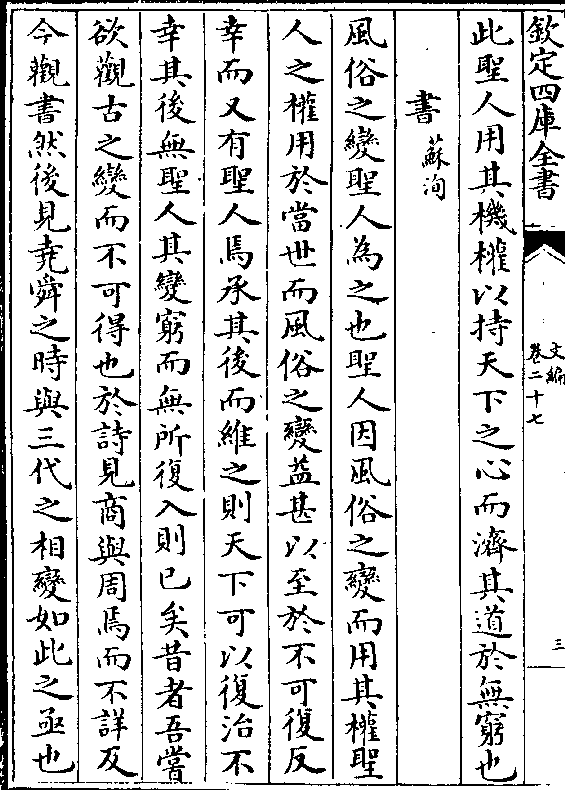 欽定四庫全書
文編
卷二十七
三
此聖人用其機權以持天下之心而濟其道於無窮也
書 蘇洵
風俗之變聖人為之也聖人因風俗之變而用其權聖
人之權用於當世而風俗之變益甚以至於不可復反
幸而又有聖人焉承其後而維之則天下可以復治不
幸其後無聖人其變窮而無所復入則已矣昔者吾嘗
欲觀古之變而不可得也於詩見商與周焉而不詳及
今觀書然後見堯舜之時與三代之相變如此之亟也